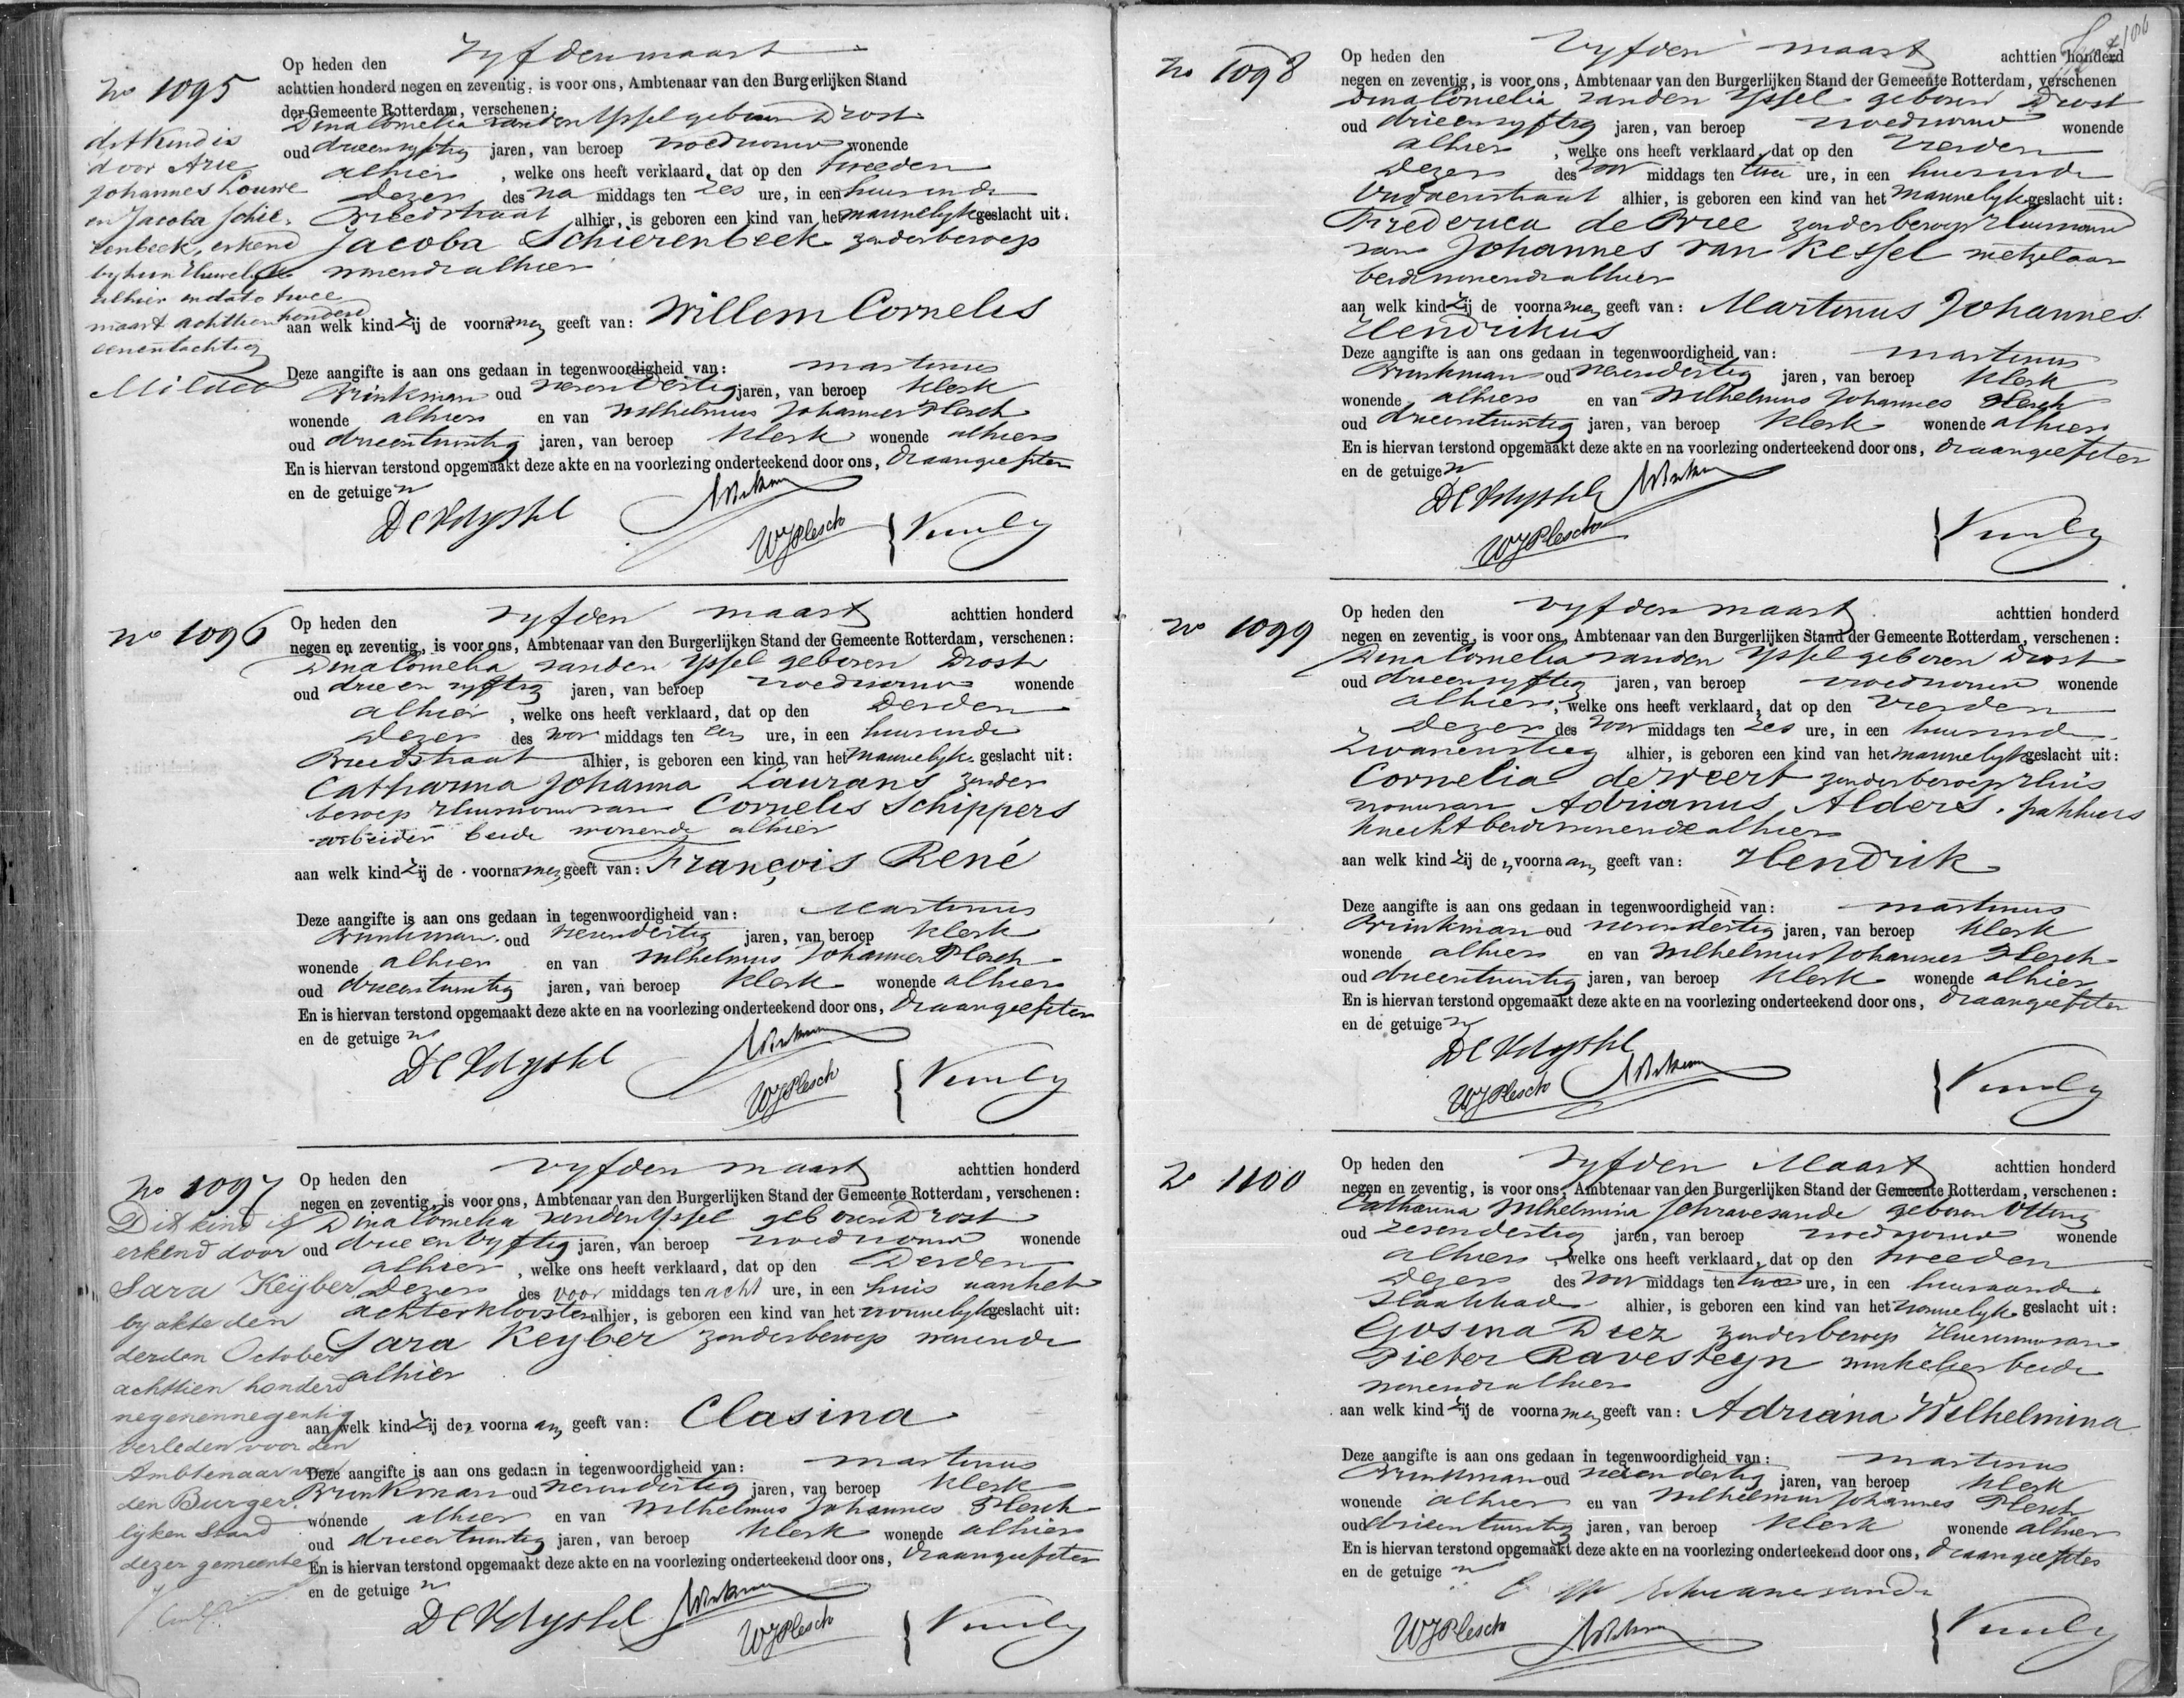 No 1095
Op heden den vyfden maart
achttien honderd negen en zeventig, is voor ons, Ambtenaar van den Burgerlijken Stand
der Gemeente Rotterdam, verschenen:
Dina Cornelia van den Yssel geboren Drost
oud drieenvyftig jaren, van beroep vroedvrouw wonende
alhier, welke ons heeft verklaard, dat op den tweeden
dezer des na middags ten zes ure, in een huis in de
Breedstraat alhier, is geboren een kind van het mannelyk geslacht uit:
Jacoba Schierenbeek zonder beroep
wonende alhier
aan welk kind zij de voornamen geeft van: Willem Cornelis
Deze aangifte is aan ons gedaan in tegenwoordigheid van: Martinus
Brinkman oud vierendertig jaren, van beroep klerk
wonende alhier en van Wilhelmus Johannes Plesch
oud drieentwintig jaren, van beroep klerk wonende alhier
En is hiervan terstond opgemaakt deze akte en na voorlezing onderteekend door ons, de aangeefster
en de getuigen
DCVdYssel
WJPlesch
dit kind is
door Arie
Johannes Louwe
en Jacoba Schie-
renbeek, erkend
by hun Huwelyk
alhier in dato twee
maart achttien honderd
eenentachtig
No 1096
Op heden den vyfden maart achttien honderd
negen en zeventig, is voor ons, Ambtenaar van den Burgerlijken Stand der Gemeente Rotterdam, verschenen:
Dina Cornelia van den Yssel geboren Drost
oud drie en vyftig jaren, van beroep vroedvrouw wonende
alhier, welke ons heeft verklaard, dat op den derden
dezer des voor middags ten een ure, in een huis in de
Breedstraat alhier, is geboren een kind van het mannelyk geslacht uit:
Catharina Johanna Laurans zonder
beroep Huisvrouw van Cornelis Schippers
arbeider beide wonende alhier
aan welk kind zij de voornamen geeft van: François René
Deze aangifte is aan ons gedaan in tegenwoordigheid van: Martinus
Brinkman oud vierendertig jaren, van beroep klerk
wonende alhier en van Wilhelmus Johannes Plesch
oud drieentwintig jaren, van beroep klerk wonende alhier
En is hiervan terstond opgemaakt deze akte en na voorlezing onderteekend door ons, de aangeefster
en de getuigen
DCVdYssel
WJPlesch
No 1097
Op heden den vyfden maart achttien honderd
negen en zeventig, is voor ons, Ambtenaar van den Burgerlijken Stand der Gemeente Rotterdam, verschenen:
Dina Cornelia van den Yssel geboren Drost
oud drie en vyftig jaren, van beroep vroedvrouw wonende
alhier, welke ons heeft verklaard, dat op den derden
dezer des voor middags ten acht ure, in een huis aan het
achterklooster alhier, is geboren een kind van het vrouwelyk geslacht uit:
Sara Keyber zonder beroep wonende
alhier
aan welk kind zij den voornaam geeft van: Clasina
Deze aangifte is aan ons gedaan in tegenwoordigheid van: Martinus
Brinkman oud vierendertig jaren, van beroep klerk
wonende alhier en van Wilhelmus Johannes Plesch
oud drieentwintig jaren, van beroep klerk wonende alhier
En is hiervan terstond opgemaakt deze akte en na voorlezing onderteekend door ons, de aangeefster
en de getuigen
DCVdYssel
WJPlesch
Dit kind is
erkend door
Sara Keyber
by akte den
derden October
achttien honderd
negenennegentig
verleden voor den
Ambtenaar van
den Burger-
lyken Stand
dezer gemeente
No 1098
Op heden den vyfden maart achttien honderd
negen en zeventig, is voor ons, Ambtenaar van den Burgerlijken Stand der Gemeente Rotterdam, verschenen
Dina Cornelia van den Yssel geboren Drost
oud drieenvyftig jaren, van beroep vroedvrouw wonende
alhier, welke ons heeft verklaard, dat op den vierden
dezer des voor middags ten twee ure, in een huis in de
alhier, is geboren een kind van het mannelyk geslacht uit:
Frederica de Bree zonder beroep Huisvrouw
van Johannes van Kessel metzelaar
beide wonende alhier
aan welk kind zij de voornamen geeft van: Martinus Johannes
Hendrikus
Deze aangifte is aan ons gedaan in tegenwoordigheid van: Martinus
Brinkman oud vierendertig jaren, van beroep klerk
wonende alhier en van Wilhelmus Johannes Plesch
oud drieentwintig jaren, van beroep klerk wonende alhier
En is hiervan terstond opgemaakt deze akte en na voorlezing onderteekend door ons, de aangeefster
en de getuigen
DCVdYssel
WJPlesch
No 1099
Op heden den vyfden maart achttien honderd
negen en zeventig, is voor ons, Ambtenaar van den Burgerlijken Stand der Gemeente Rotterdam, verschenen:
Dina Cornelia van den Yssel geboren Drost
oud drieenvyftig jaren, van beroep vroedvrouw wonende
alhier, welke ons heeft verklaard, dat op den vierden
dezer des voor middags ten zes ure, in een huis in de
Zwanensteeg alhier, is geboren een kind van het mannelyk geslacht uit:
Cornelia de Weert zonder beroep Huis
vrouw van Adrianus Alders, pakhuis
knecht beide wonende alhier
aan welk kind zij den voornaam geeft van: Hendrik
Deze aangifte is aan ons gedaan in tegenwoordigheid van: Martinus
Brinkman oud vierendertig jaren, van beroep klerk
wonende alhier en van Wilhelmus Johannes Plesch
oud drieentwintig jaren, van beroep klerk wonende alhier
En is hiervan terstond opgemaakt deze akte en na voorlezing onderteekend door ons, de aangeefster
en de getuigen
DCVdYssel
WJPlesch
No 1100
Op heden den vyfden Maart achttien honderd
negen en zeventig, is voor ons, Ambtenaar van den Burgerlijken Stand der Gemeente Rotterdam, verschenen:
Catharina Wilhelmina Schravesande geboren Otting
oud zesendertig jaren, van beroep vroedvrouw wonende
alhier, welke ons heeft verklaard, dat op den tweeden
dezer des voor middags ten twee ure, in een huis aan de
Slaakkade alhier, is geboren een kind van het vrouwelyk geslacht uit:
Gosina Diez zonder beroep Huisvrouw van
Pieter Ravesteyn winkelier beide
wonende alhier
aan welk kind zij de voornamen geeft van: Adriana Wilhelmina
Deze aangifte is aan ons gedaan in tegenwoordigheid van: Martinus
Brinkman oud vierendertig jaren, van beroep klerk
wonende alhier en van Wilhelmus Johannes Plesch
oud drieentwintig jaren, van beroep klerk wonende alhier
En is hiervan terstond opgemaakt deze akte en na voorlezing onderteekend door ons, de aangeefster
en de getuigen
WJPlesch